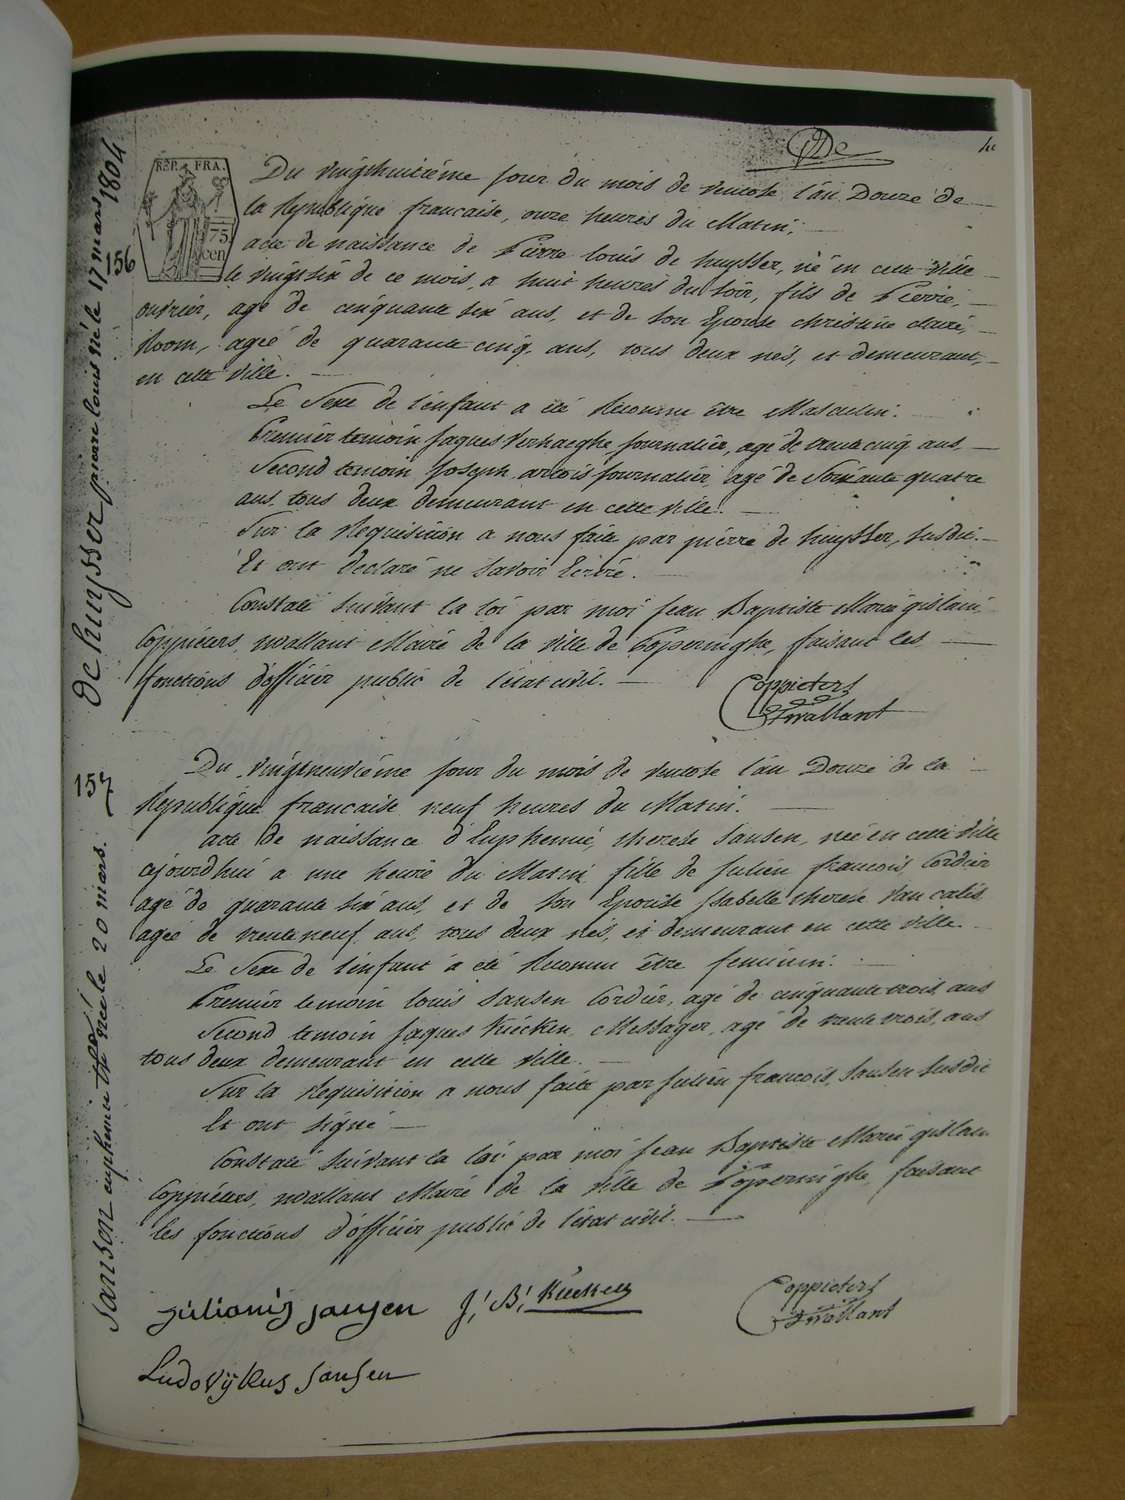 De
RÉP. FRA.
75
cen
1804
156
de huysser pierre louis né le 17 mars
Du vingthuitiéme jour du mois de ventose l'an Douze de
la Republique francaise, onze heures du Matin;
acte de naissance de Pierre louis de huysser, né en cette Ville
le vingtsix de ce mois, a huit heures du soir, fils de Pierre,
ouvrier, agé de cinquante six ans, et de son Epouse christine claire,
Room, agée de quarante cinq ans, tous deux nés, et demeurant,
en cette Ville.
Le Sexe de l'enfant a été Reconnu être Masculin.
Premier temoin Jaques Verhaeghe journalier, agé de trente cinq ans,
Second temoin Joseph artois journalier, agé de Soixante quatre
ans, tous deux demeurant en cette ville.
Sur la Requisition a nous faite par piérre de huysser, susdit.
Et ont declaré ne Savoir Ecrire.
Constaté Suivant la loi par moi Jean Baptiste Marie gislain
Coppieters, wallant Maire de la Ville de Poperinghe, faisant les
fonctions d'officier public de l'état civil.
Coppieters
Twallant
157
Jansen euphemie thé née le 20 mars.
Du Vingtneuviéme jour du mois de ventose l'an Douze de la
Republique francaise neuf heures du Matin.
acte de naissance d'Euphemie, therese Jansen, née en cette Ville
ajourdhui a une heure du Matin fille de Julien francois, Cordier
agé de quarante six ans, et de Son Epouse Isabelle therese Van calis
agée de trenteneuf ans, tous deux nés, et demeurant en cette Ville.
Le Sexe de l'enfant a été Reconnu être feminin.
Premier temoin louis Jansen Cordier, agé de cinquante trois ans
Second temoin Jaques Kiécken, Messager, agé de trente trois ans
tous deux demeurant en cette Ville.
Sur la Requisition a nous faite par Julien francois, Jansen Susdit
Et ont signé
Constaté Suivant la loi par moi Jean Baptiste Marie gislain
Coppieters, wallant Maire de la Ville de Poperinghe, faisant
les fonctions d'officier public de l'état civil.
Julianus jansen J: B: Kiecken
Coppieters
Twallant
Ludovijkus Jansen